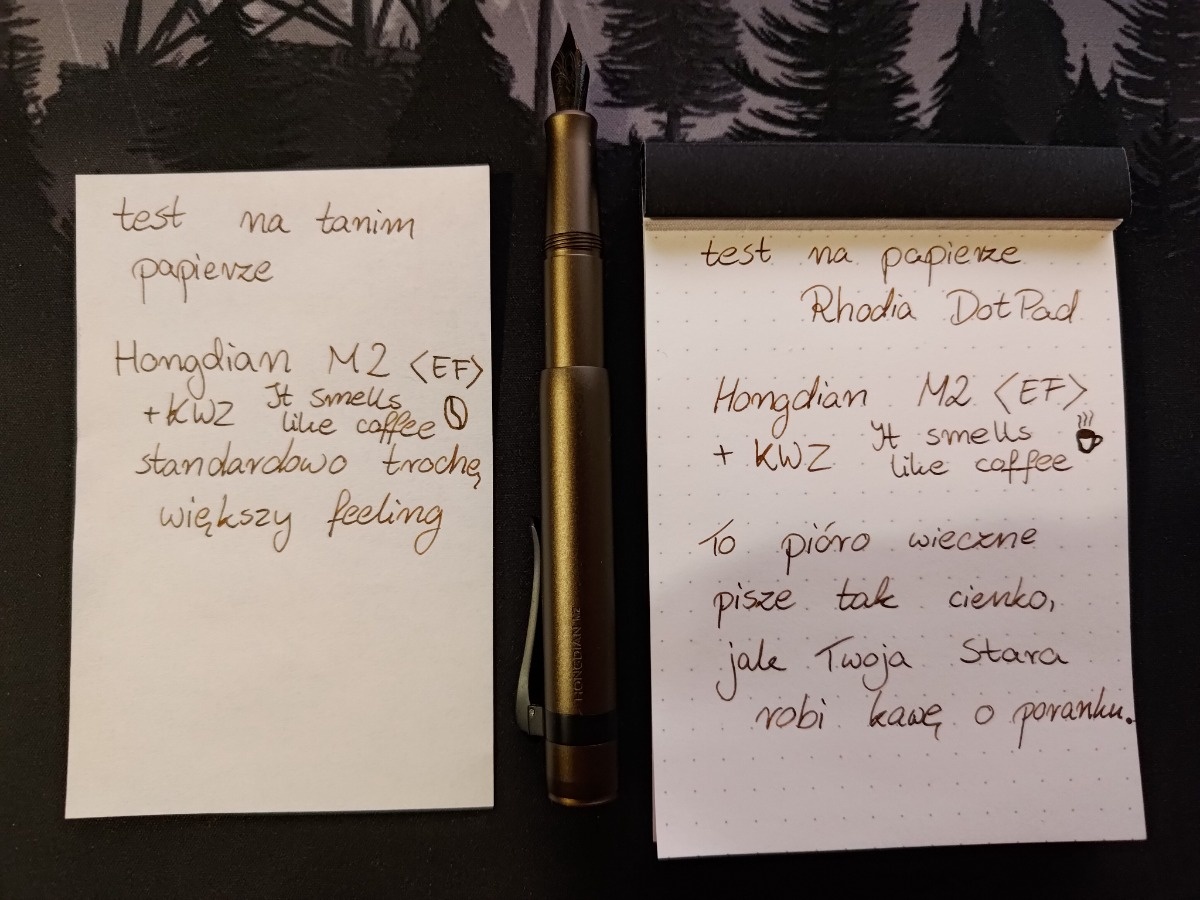 test na tanim
papierze
Hongdian M2 <EF>
+ KWZ It smells
like coffee
standardowo trochę
większy feeling
HONGDIAN M2
test na papierze
Rhodia DotPad
Hongdian M2 <EF>
+ KWZ It smells
like coffee
To pióro wieczne
pisze tak cienko,
jak Twoja Stara
robi kawę o poranku.